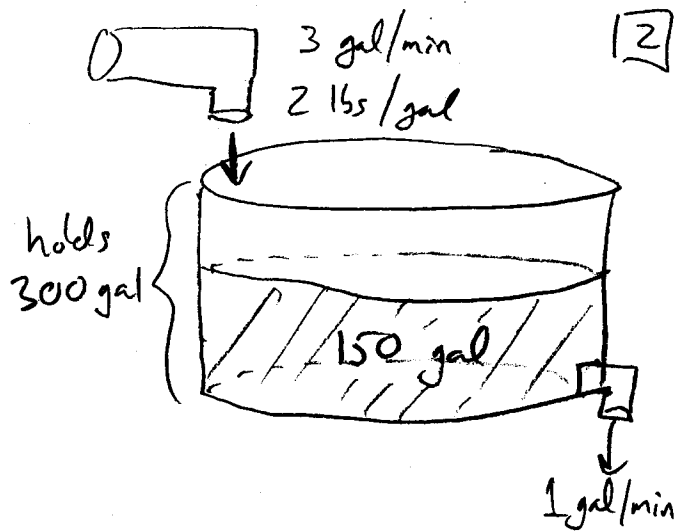 3 gal/min
2
2 lbs/gal
holds
300 gal
150 gal
1 gal/min